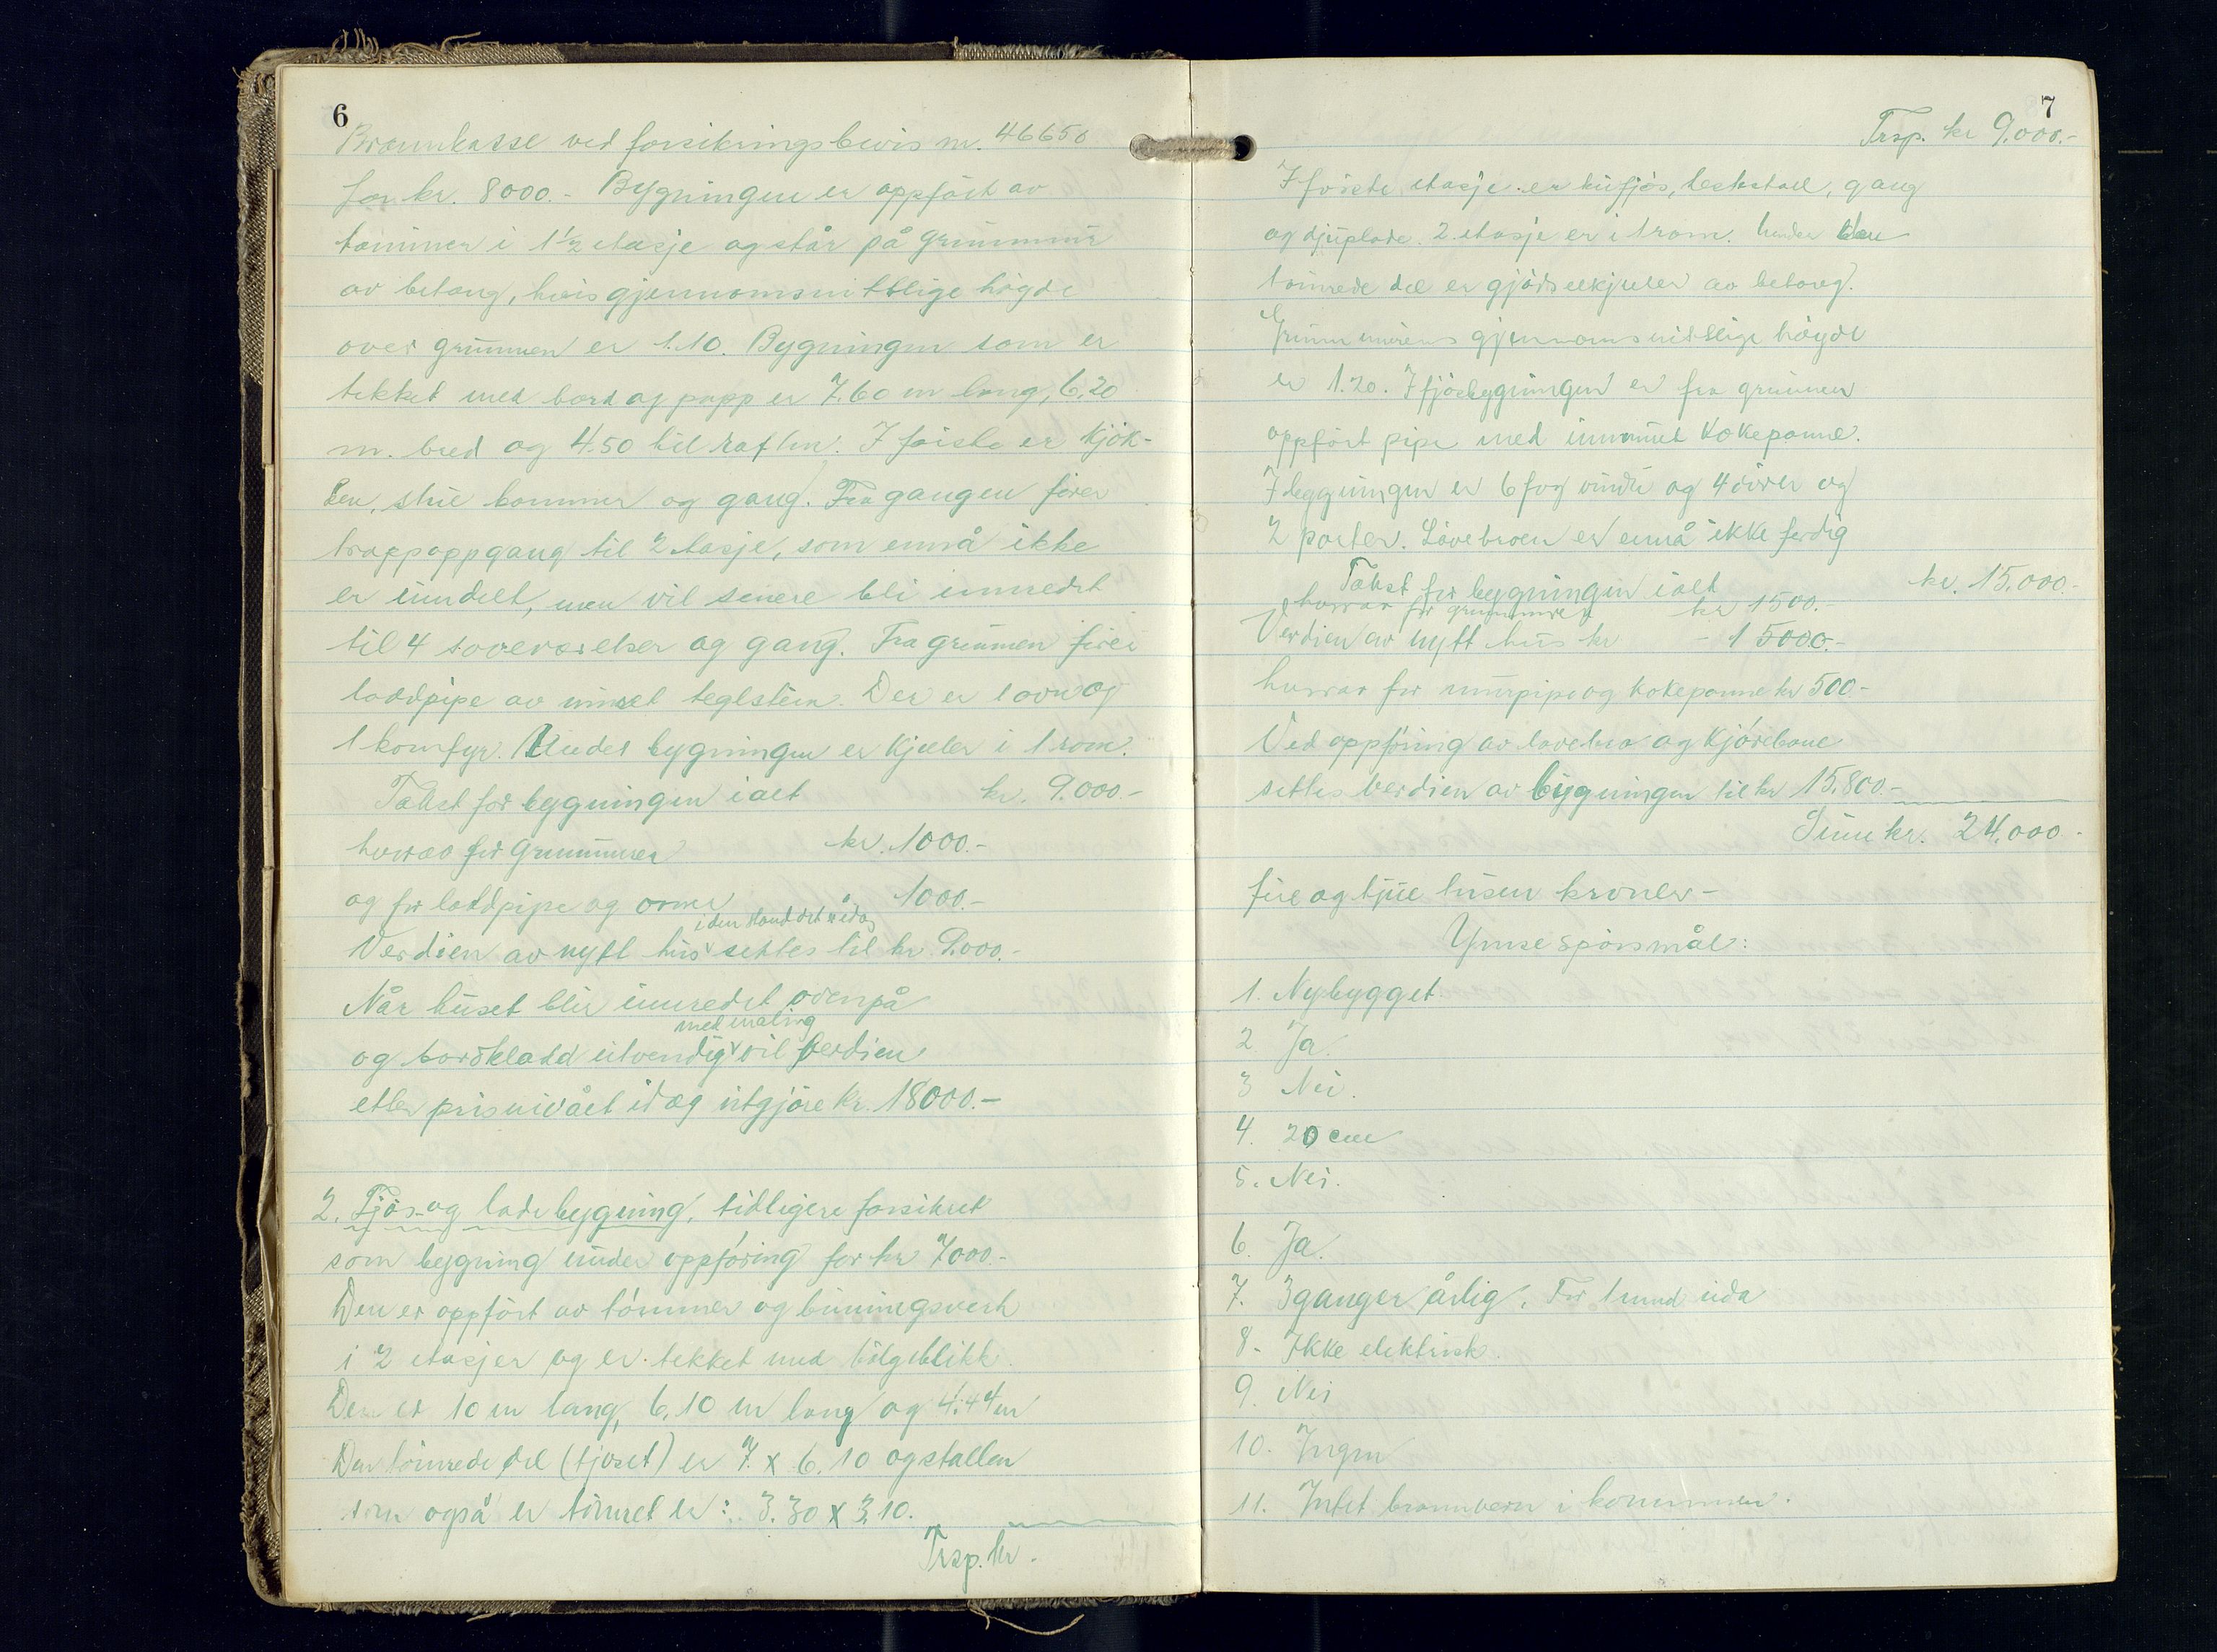 6
Brannkasse ved forsikringsbevis nr. 46650
for kr. 8000.- Bygningen er oppført av
tømmer i 1½ etasje og står på grunnmur
av betong, hvis gjennomsnittlige høgde
over grunnen er 1.10. Bygningen som er
tekket med bord og papp er 7.60 m lang, 6.20
m. bred og 4.50 til raften. I første er kjøk-
ken, stue kammer og gang. Fra gangen fører
trappoppgang til 2 etasje, som ennå ikke
er inndelt, men vil senere bli innredet
til 4 soveværelser og gang. Fra grunnen fører
loddpipe av murt teglstein. Der er 1 ovn og
1 komfyr. Under bygningen er kjeller i 1 rom.
Takst for bygningen ialt kr. 9.000.-
hvorav for grunnmuren kr. 1000.-
og for loddpipe og ovner " 1000.-
i den stand det er idag
Verdien av nytt hus settes til kr 9.000.-
Når huset blir innredet ovenpå
med maling
og bordkledd utvendig vil verdien
etter prisnivået idag utgjøre kr. 18000.-
2. Fjøs- og ladebygning, tidligere forsikret
som bygning under oppføring for kr 7000.-
Den er oppført av tømmer og binningsverk
i 2 etasjer og er tekket med bølgeblikk.
Den er 10 m lang, 6.10 m lang og 4.44 m
Den tømrede del (fjøset) er 7. x 6.10 og stallen
som også er tømret er: 3.30 x 3.10.
Trsp. kr.
7
Trsp. kr 9.000.-
I første etasje er kufjøs, hestestall, gang
og djuplade. 2. etasje er i 1 rom. Under den
tømrede del er gjødselkjeller av betong.
Grunnmurens gjennomsnittlige høgde
er 1.20. I fjøsbygningen er fra grunnen
oppført pipe med innmuret kokepanne.
I bygningen er 6 fag vindu og 4 dører og
2 porter. Låvebroen er ennå ikke ferdig
Takst for bygningen ialt kr. 15.000.-
hvorav for grunnmuren kr 1500.-
Verdien av nytt hus kr - 15000.-
hvorav for murpipe og kokepanne kr 500.-
Ved oppføring av låvebro og kjørebane
settes verdien av bygningen til kr 15.800.-
Sum kr. 24.000.-
fire og tjue tusen kroner -
Ymse spørsmål:
1. Nybygget
2 Ja.
3 Nei.
4. 20 cm
5. Nei.
6. Ja.
7. 3 ganger årlig. For 1 mnd sida
8- Ikke elektrisk.
9. Nei
10. Ingen
11. Intet brannvern i kommunen.